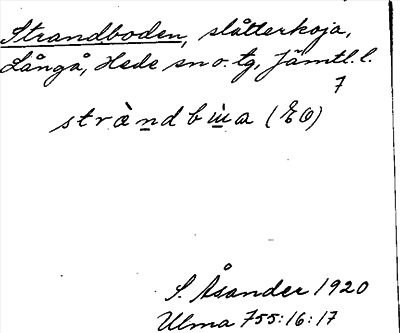 Strandboden, slåtterkoja,
Långå, Hede sn o. tg, Jämtl. l.
7
S. Åsander 1920
Ulma 755:16:17